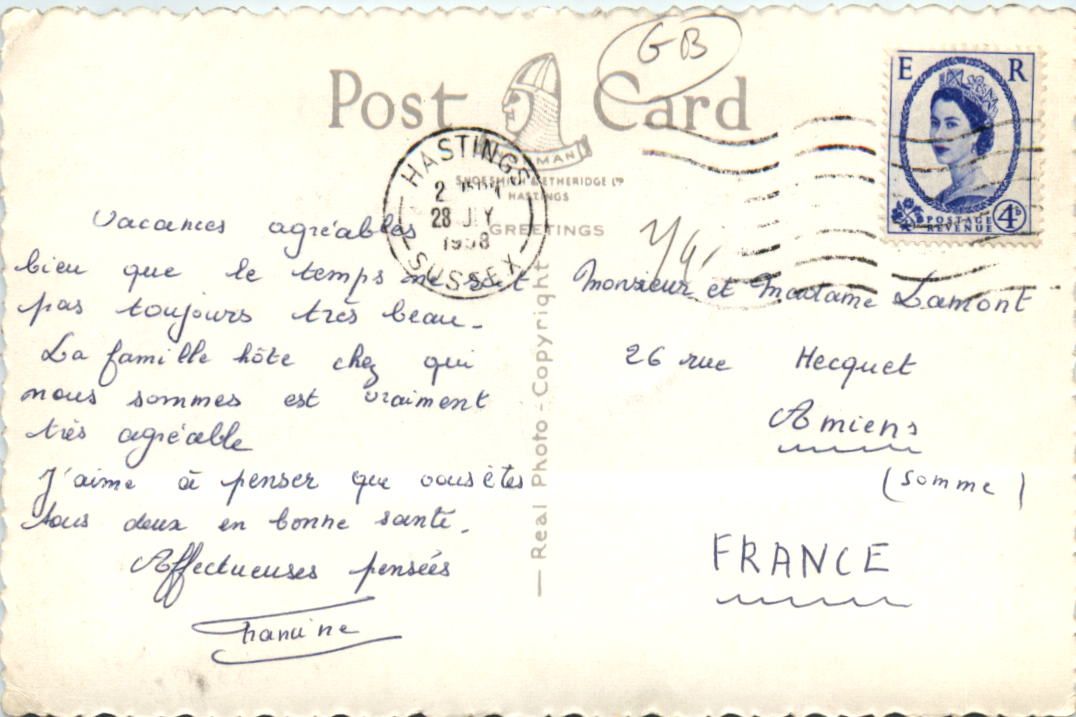 GB
Post Card
NORMAN
SHOESMITH & ETHERIDGE LTD
HASTINGS
GREETINGS
HASTINGS
2
28 JLY
1958
SUSSEX
E R
POSTAGE
REVENUE
4D
Vacances agréables
bien que le temps ne soit
pas toujours très beau.
La famille hôte chez qui
nous sommes est vraiment
très agréable
J'aime à penser que vous êtes
tous deux en bonne santé.
Affectueuses pensées
— Real Photo - Copyright —
Monsieur et Madame Lamont
26 rue Hecquet
Amiens
(Somme)
FRANCE